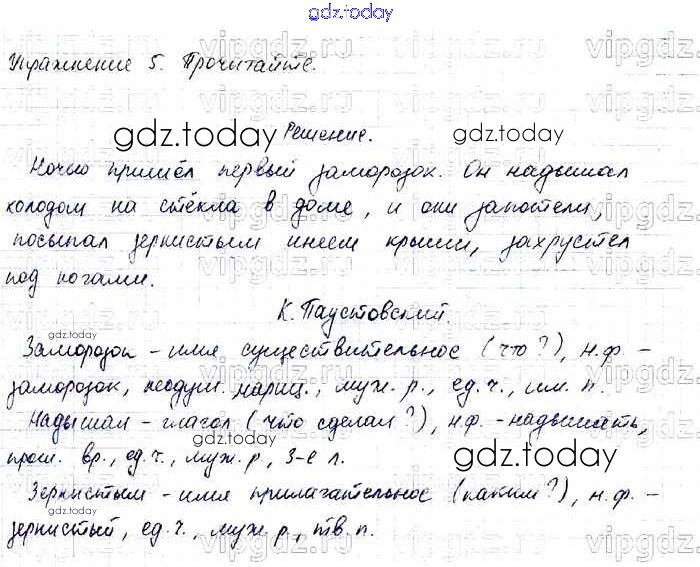 gdz.today
Упражнение 5. Прочитайте.
Решение.
Ночью пришёл первый заморозок. Он надышал
холодом на стёкла в доме, и они запотели,
посыпал зернистым инеем крыши, захрустел
под ногами.
К. Паустовский.
Заморозок – имя существительное (что?), н.ф. –
заморозок, неодуш. нариц., муж. р., ед. ч., им. п.
Надышал – глагол (что сделал?), н.ф. – надышать,
прош. вр., ед. ч., муж. р, 3-е л.
Зернистым – имя прилагательное (каким?), н.ф. –
зернистый, ед. ч., муж. р., тв. п.